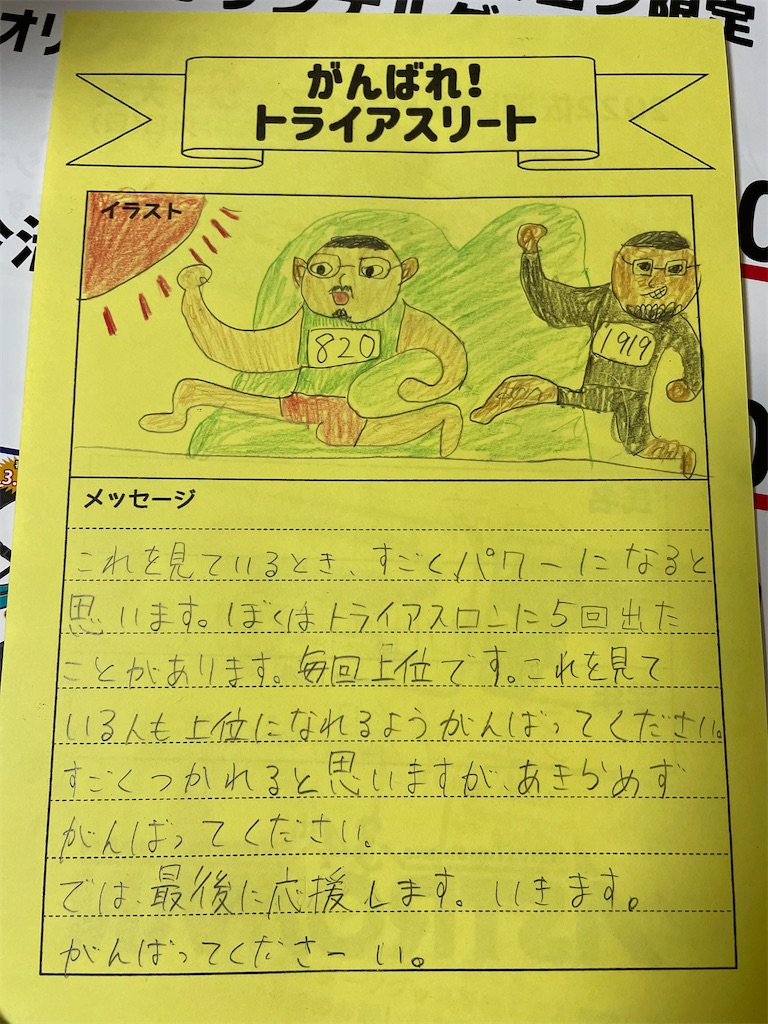 がんばれ!
トライアスリート
イラスト
820
1919
メッセージ
これを見ているとき、すごくパワーになると
思います。ぼくはトライアスロンに5回出た
ことがあります。毎回上位です。これを見て
いる人も上位になれるようがんばってください。
すごくつかれると思いますが、あきらめず
がんばってください。
では、最後に応援します。いきます。
がんばってくださーい。